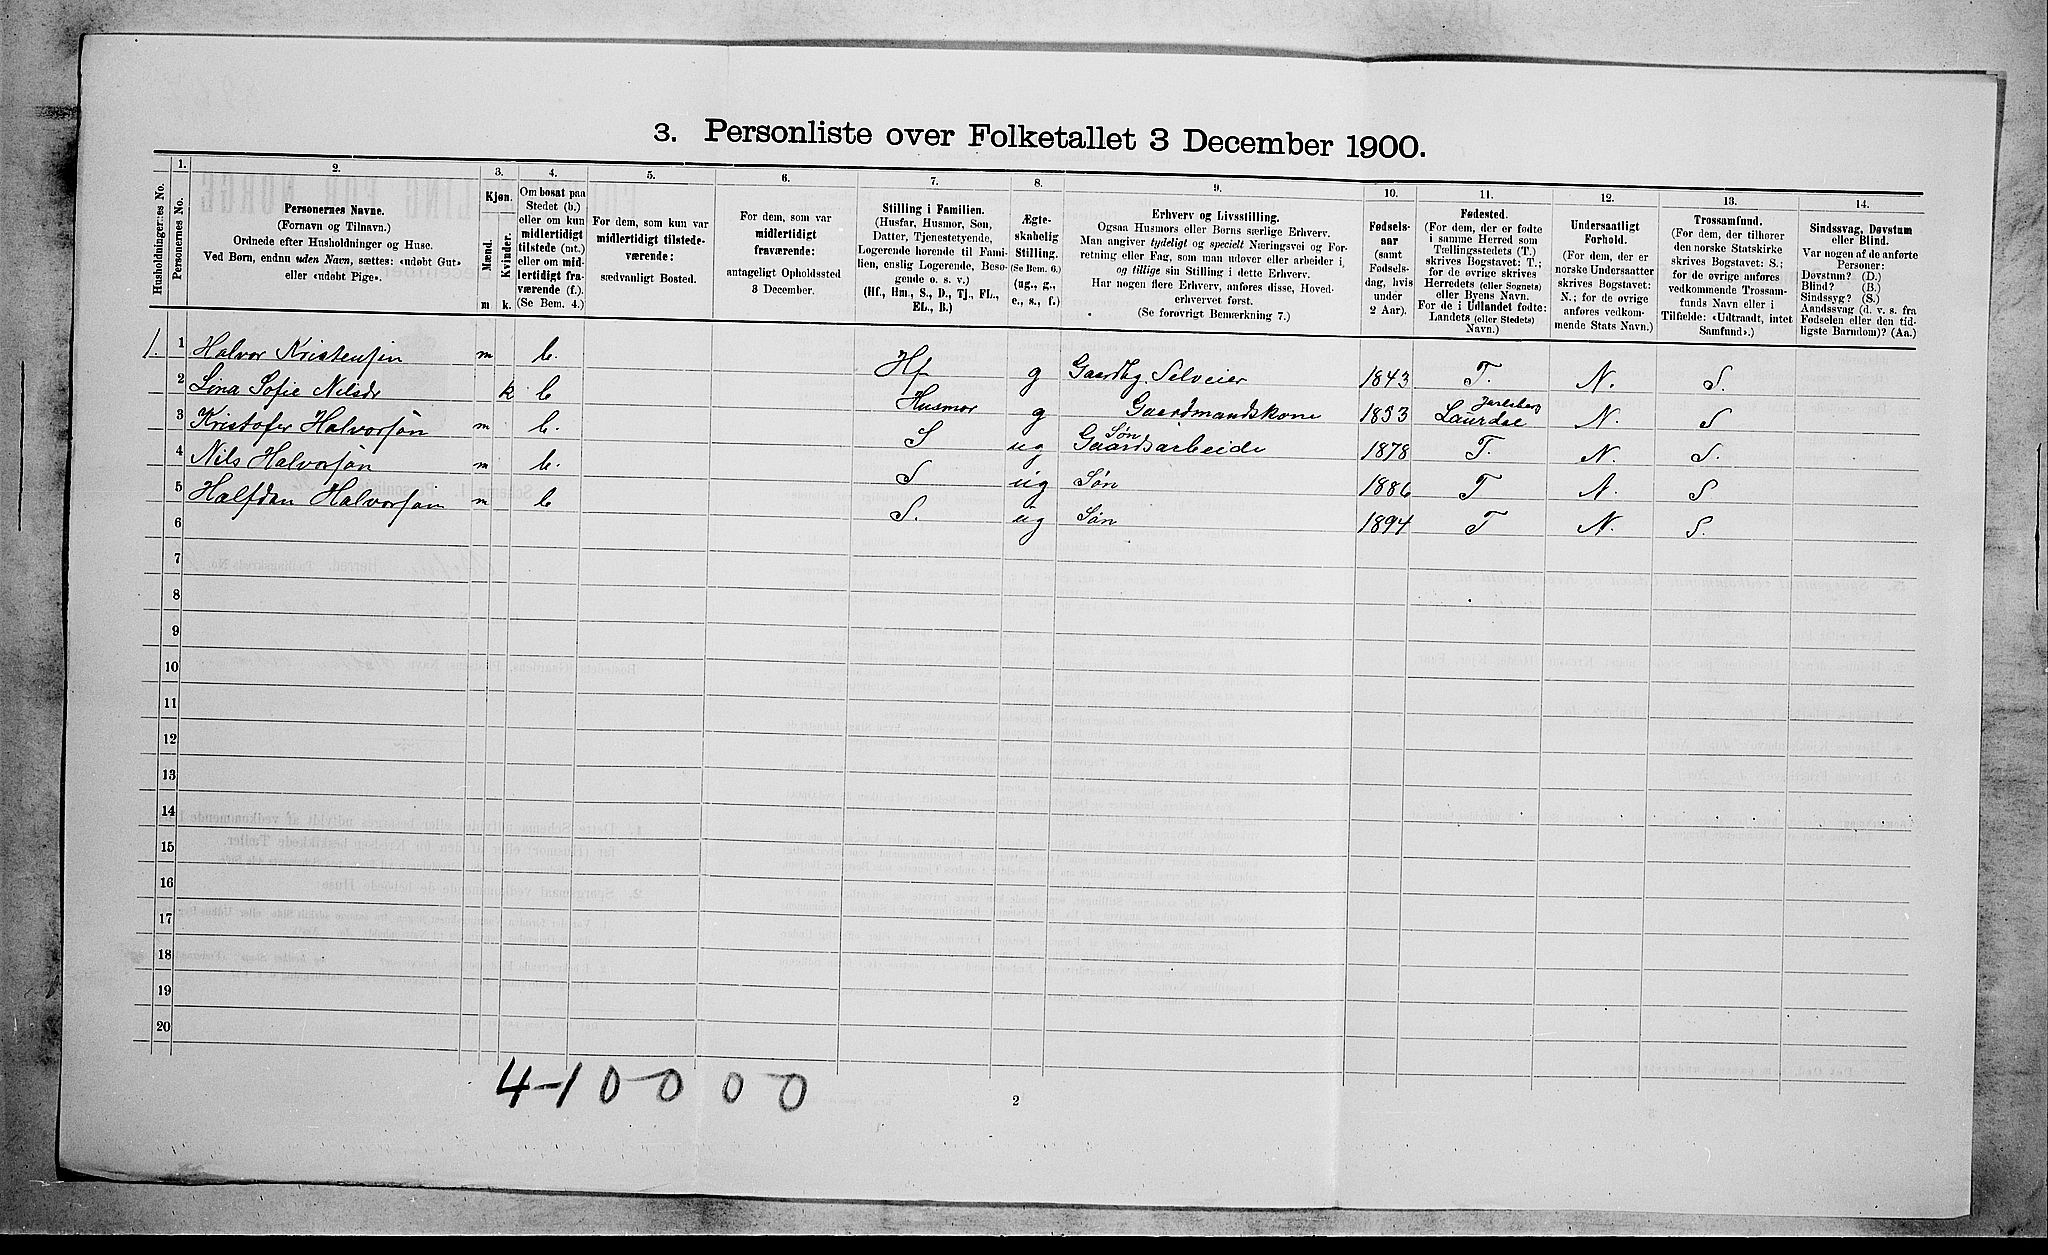 3. Personliste over Folketallet 3 December 1900.
1. 2. 3. 4. 5. 6. 7. 8. 9. 10. 11. 12. 13. 14.
Husholdningernes No.
Personernes No.
Personernes Navne.
(Fornavn og Tilnavn.)
Ordnede efter Husholdninger og Huse.
Ved Børn, endnu uden Navn, sættes: «udøbt Gut»
eller «udøbt Pige».
Kjøn.
Mænd.
Kvinder.
m k.
Om bosat paa
Stedet (b.)
eller om kun
midlertidigt
tilstede (mt.)
eller om mid-
lertidigt fra-
værende (f.).
(Se Bem. 4.)
For dem, som kun var
midlertidigt tilstede-
værende:
sædvanligt Bosted.
For dem, som var
midlertidigt
fraværende:
antageligt Opholdssted
3 December.
Stilling i Familien.
(Husfar, Husmor, Søn,
Datter, Tjenestetyende,
Logerende hørende til Fami-
lien, enslig Logerende, Besø-
gende o. s. v.)
(Hf., Hm., S., D., Tj., FL.,
EL., B.)
Ægte-
skabelig
Stilling.
(Se Bem. 6.)
(ug., g.,
e., s., f.)
Erhverv og Livsstilling.
Ogsaa Husmors eller Børns særlige Erhverv.
Man angiver tydeligt og specielt Næringsvei og For-
retning eller Fag, som man udøver eller arbeider i,
og tillige sin Stilling i dette Erhverv.
Har nogen flere Erhverv, anføres disse, Hoved-
erhvervet først.
(Se forøvrigt Bemærkning 7.)
Fødsels-
aar
(samt
Fødsels-
dag, hvis
under
2 Aar).
Fødested.
(For dem, der er fødte
i samme Herred som
Tællingsstedets (T.)
skrives Bogstavet: T.;
for de øvrige skrives
Herredets (eller Sognets)
eller Byens Navn.
For de i Udlandet fødte:
Landets (eller Stedets)
Navn.)
Undersaatligt
Forhold.
(For dem, der er
norske Undersaatter
skrives Bogstavet:
N.; for de øvrige
anføres vedkom-
mende Stats Navn.)
Trossamfund.
(For dem, der tilhører
den norske Statskirke
skrives Bogstavet: S.;
for de øvrige anføres
vedkommende Trossam-
funds Navn eller i
Tilfælde: «Udtraadt, intet
Samfund».)
Sindssvag, Døvstum
eller Blind.
Var nogen af de anførte
Personer:
Døvstum? (D.)
Blind? (B.)
Sindssyg? (S.)
Aandssvag (d. v. s. fra
Fødselen eller den tid-
ligste Barndom)? (Aa.)
1. 1 Halvor Kristensøn m b. Hf g Gaardbg. Selveier 1843 T. N. S.
2 Lina Sofie Nilsdr k b Husmor g Gaardmandskone 1853 Laurdal Jarlsberg N. S
3 Kristofer Halvorsøn m b. S ug Gaardsarbeide Søn 1878 T. N. S.
4 Nils Halvorsøn m b. S. ug Søn 1886 T N. S
5 Halfdan Halvorsøn m b S. ug Søn 1894 T N. S.
6
7
8
9
10
11
12
13
14
15
16
17
18
19
20
4-1 0-0 0 0
2